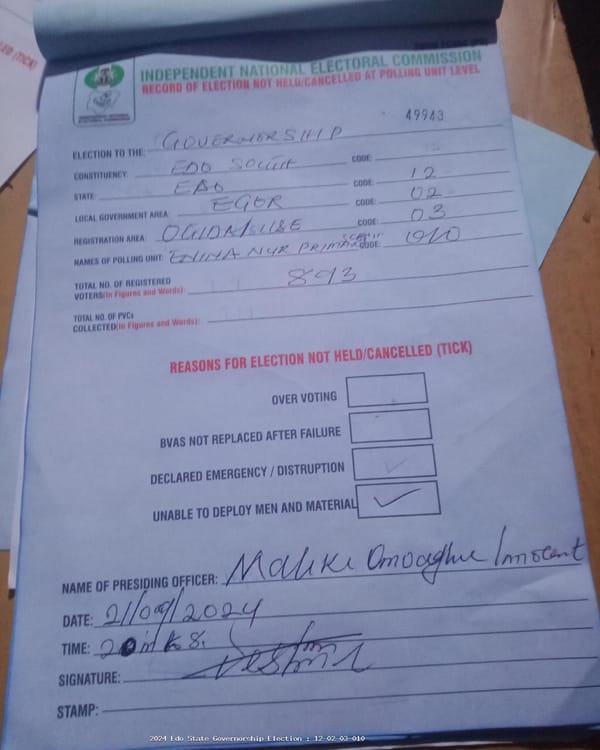 INDEPENDENT NATIONAL ELECTORAL COMMISSION
RECORD OF ELECTION NOT HELD/CANCELLED AT POLLING UNIT LEVEL
49943
ELECTION TO THE: GOVERNORSHIP
CONSTITUENCY: EDO SOUTH CODE:
STATE: EDO CODE: 12
LOCAL GOVERNMENT AREA: EGOR CODE: 02
REGISTRATION AREA: CODE: 03
NAMES OF POLLING UNIT: PRIMARY CODE: 010
TOTAL NO. OF REGISTERED
VOTERS(In Figures and Words): 893
TOTAL NO. OF PVCs
COLLECTED(In Figures and Words):
REASONS FOR ELECTION NOT HELD/CANCELLED (TICK)
OVER VOTING
BVAS NOT REPLACED AFTER FAILURE
DECLARED EMERGENCY / DISTRUPTION
UNABLE TO DEPLOY MEN AND MATERIAL ✓
NAME OF PRESIDING OFFICER: Maliki Omoaghe Innocent
DATE: 21/09/2024
TIME:
SIGNATURE:
STAMP:
2024 Edo State Governorship Election : 12-02-03-010